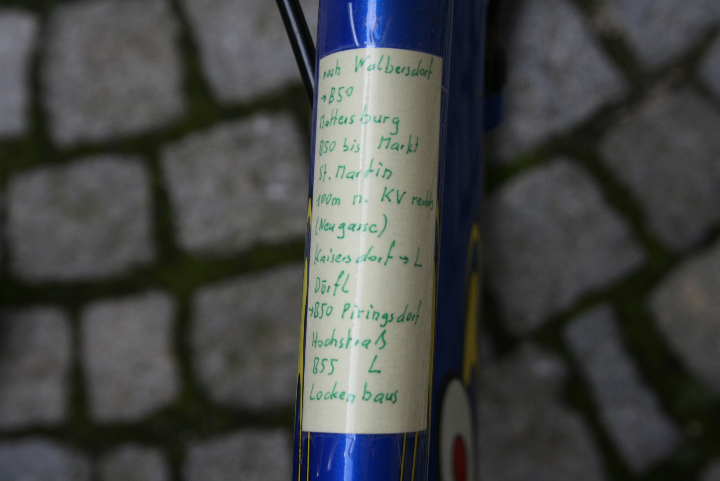 nach Walbersdorf
→ B50
Mattersburg
B50 bis Markt
St. Martin
100m n. KV rechts
(Neugasse)
Kaisersdorf → L
Dörfl
→ B50 Piringsdorf
Hochstraß
B55 L
Lockenhaus